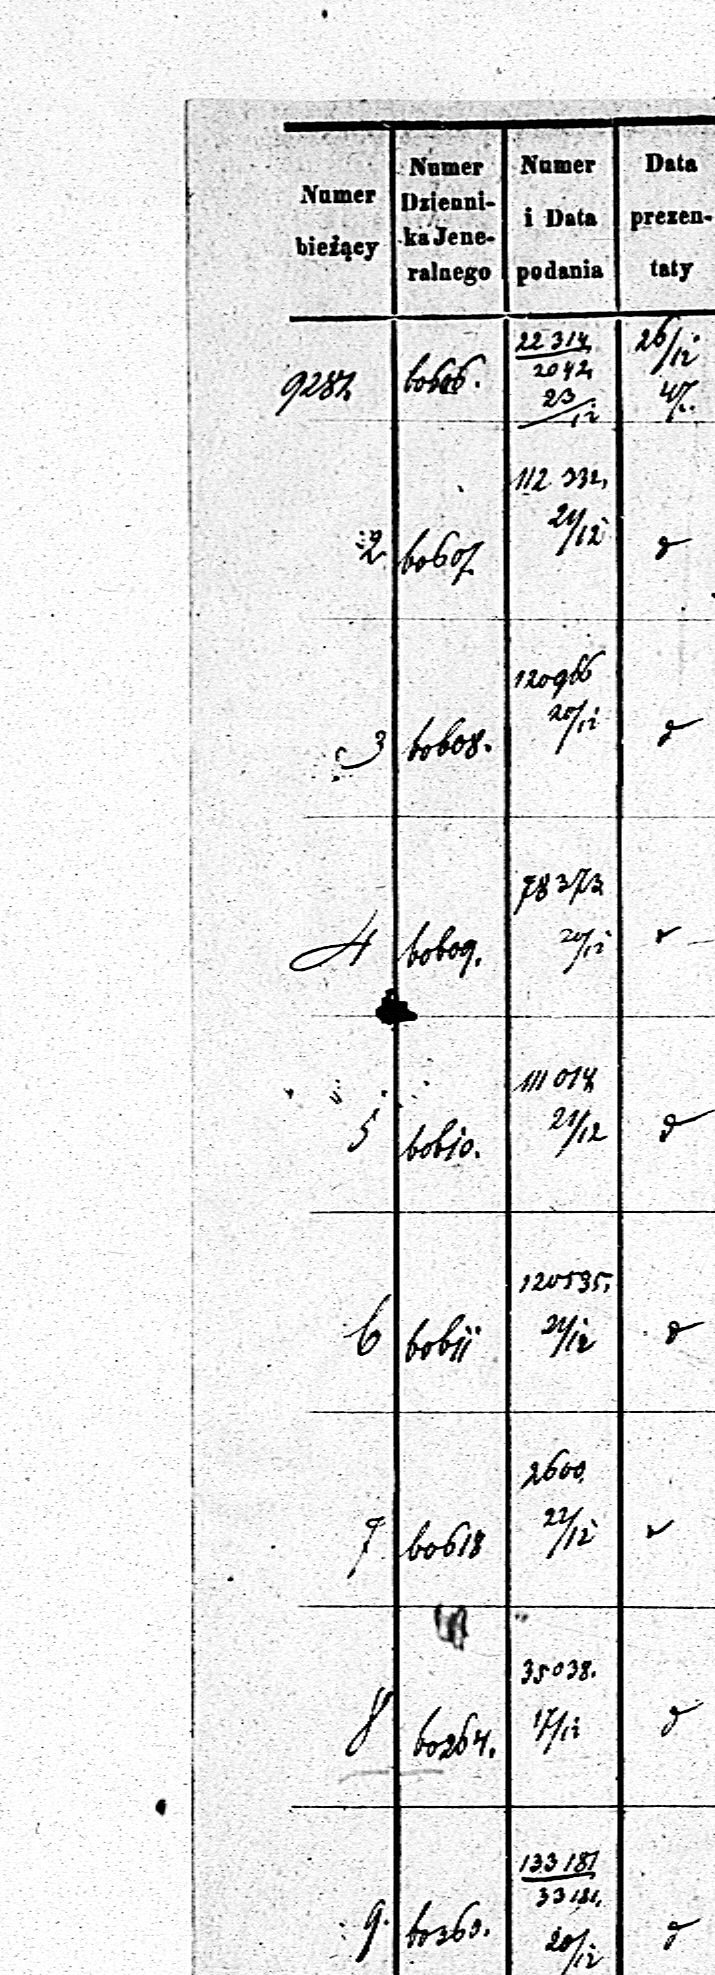 Numer bieżący
Numer Dzienni-ka Jene-ralnego
Numer i Data podania
Data prezen-taty
9281 60606. 22314 26/12
2042 47.
23/12
112 332,
2 60607 21/12 d
120966
3 60608. 20/12 d
78373
4 60609. 20/12
111014
5 60610. 21/12 d
120535.
6 60611 21/12 d
2600.
7 60618 22/12
35038.
8 60264. 17/12 d
133181
33181,
9. 60360. 20/12 d